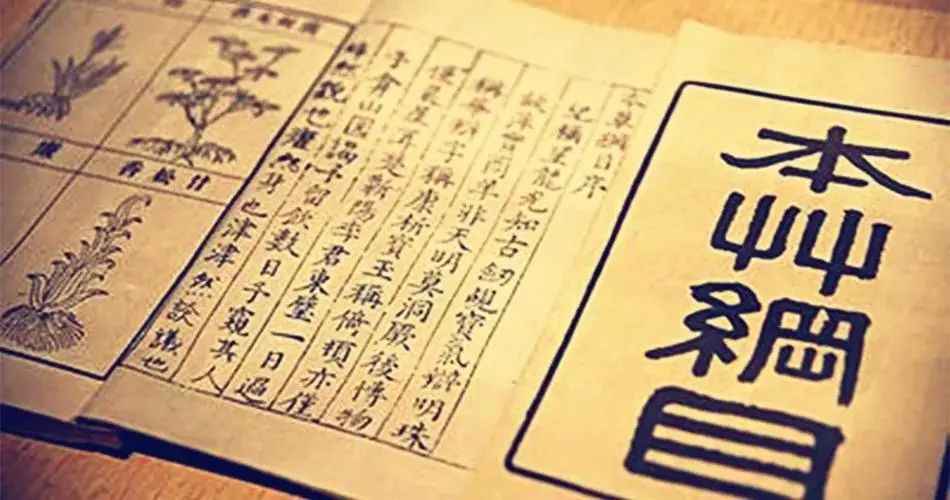 本艸綱目
本草綱目序
紀稱望龍光知古劒覘寶氣辯明珠
故萍實商羊非天明莫洞厥後博物
稱華辨字稱康析寶玉稱倚頓亦僅
僅晨星耳楚蘄陽李君東璧一日過
予弇山園謁予留飲數日予窺其人
睟然貌也癯然身也津津然談議也
甘松香